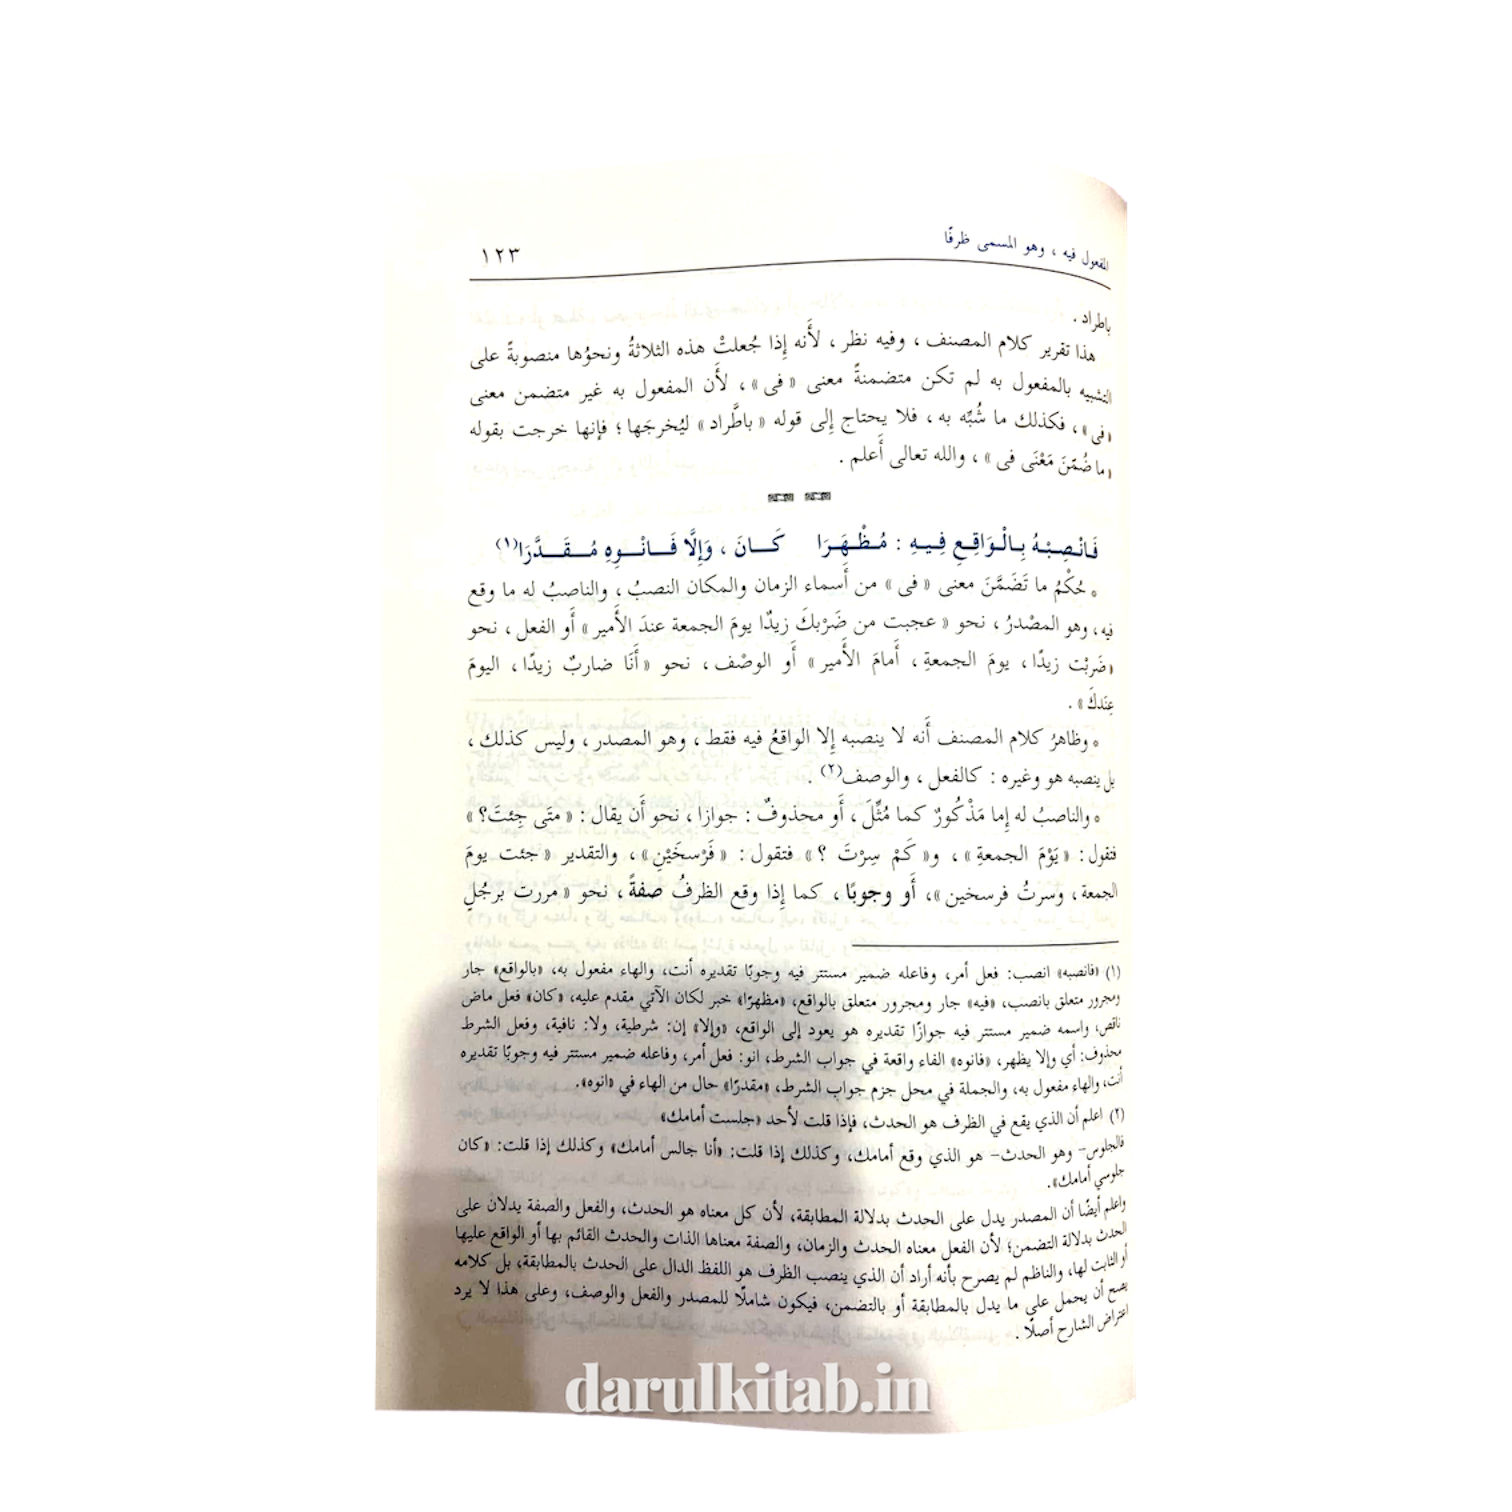 المفعول فيه ، وهو المسمى ظرفًا
١٢٣
باطراد .
هذا تقرير كلام المصنف ، وفيه نظر ، لأَنه إِذا جُعلتْ هذه الثلاثةُ ونحوُها منصوبةً على
التشبيه بالمفعول به لم تكن متضمنةً معنى « فى » ، لأَن المفعول به غير متضمن معنى
« فى » ، فكذلك ما شُبِّه به ، فلا يحتاج إِلى قوله « باطَّراد » ليُخرجَها ؛ فإنها خرجت بقوله
« ما ضُمّنَ مَعْنَى فى » ، والله تعالى أَعلم .
فَانْصِبْهُ بِالْوَاقِعِ فِيهِ : مُظْهَرَا كَانَ ، وَإِلَّا فَانْوِهِ مُقَدَّرَا(١)
* حُكْمُ ما تَضَمَّنَ معنى « فى » من أَسماء الزمان والمكان النصبُ ، والناصبُ له ما وقع
فيه ، وهو المصْدرُ ، نحو « عجبت من ضَرْبكَ زيدًا يومَ الجمعة عندَ الأَمير » أَو الفعل ، نحو
« ضَرَبْت زيدًا ، يومَ الجمعةِ ، أَمامَ الأَمير » أَو الوصْف ، نحو « أَنَا ضاربٌ زيدًا ، اليومَ
عِندَكَ » .
* وظاهرُ كلام المصنف أَنه لا ينصبه إِلا الواقعُ فيه فقط ، وهو المصدر ، وليس كذلك ،
بل ينصبه هو وغيره : كالفعل ، والوصف(٢) .
* والناصبُ له إِما مَذْكُورٌ كما مُثِّلَ ، أَو محذوفٌ : جوازا ، نحو أَن يقال : « متَى جِئتَ؟ »
فتقول : « يَوْمَ الجمعةِ » ، و« كَمْ سِرْتَ ؟ » فتقول : « فَرْسخَيْنِ » ، والتقدير « جئت يومَ
الجمعة ، وسرتُ فرسخين » ، أَو وجوبًا ، كما إِذا وقع الظرفُ صفةً ، نحو « مررت برجُلٍ
(١) «فانصبه» انصب: فعل أمر، وفاعله ضمير مستتر فيه وجوبًا تقديره أنت، والهاء مفعول به، «بالواقع» جار
ومجرور متعلق بانصب، «فيه» جار ومجرور متعلق بالواقع، «مظهرًا» خبر لكان الآتي مقدم عليه، «كان» فعل ماض
ناقص، واسمه ضمير مستتر فيه جوازًا تقديره هو يعود إلى الواقع، «وإلا» إن: شرطية، ولا: نافية، وفعل الشرط
محذوف: أي وإلا يظهر، «فانوه» الفاء واقعة في جواب الشرط، انو: فعل أمر، وفاعله ضمير مستتر فيه وجوبًا تقديره
أنت، والهاء مفعول به، والجملة في محل جزم جواب الشرط، «مقدرًا» حال من الهاء في «انوه».
(٢) اعلم أن الذي يقع في الظرف هو الحدث، فإذا قلت لأحد «جلست أمامك»
فالجلوس– وهو الحدث– هو الذي وقع أمامك، وكذلك إذا قلت: «أنا جالس أمامك» وكذلك إذا قلت: «كان
جلوسي أمامك».
واعلم أيضًا أن المصدر يدل على الحدث بدلالة المطابقة، لأن كل معناه هو الحدث، والفعل والصفة يدلان على
الحدث بدلالة التضمن؛ لأن الفعل معناه الحدث والزمان، والصفة معناها الذات والحدث القائم بها أو الواقع عليها
أو الثابت لها، والناظم لم يصرح بأنه أراد أن الذي ينصب الظرف هو اللفظ الدال على الحدث بالمطابقة، بل كلامه
يصح أن يحمل على ما يدل بالمطابقة أو بالتضمن، فيكون شاملًا للمصدر والفعل والوصف، وعلى هذا لا يرد
اعتراض الشارح أصلًا .
darulkitab.in